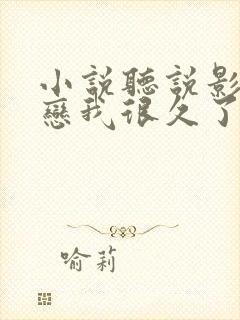 小說聽說影
戀我很久了
喻莉